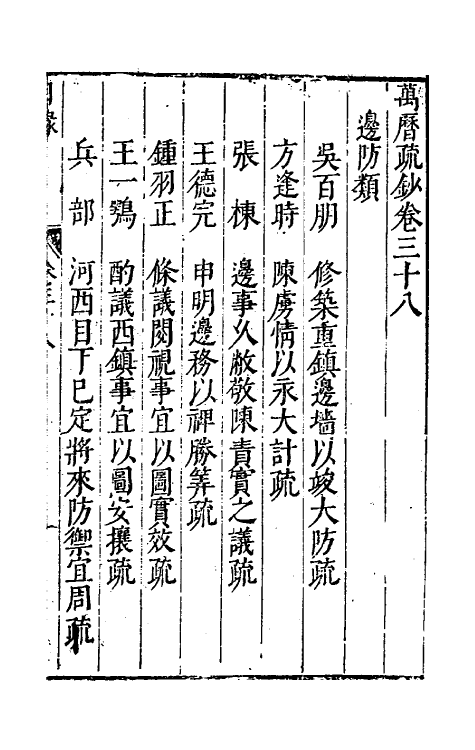 萬曆疏鈔卷三十八
邊防類
吳百朋 修築重鎮邊墻以竣大防疏
方逢時 陳虜情以永大計疏
張棟 邊事久敝敬陳責實之議疏
王德完 申明邊務以裨勝筭疏
鍾羽正 條議閱視事宜以圖實效疏
王一鶚 酌議西鎮事宜以圖安攘疏
兵部 河西目下已定將來防禦宜周疏